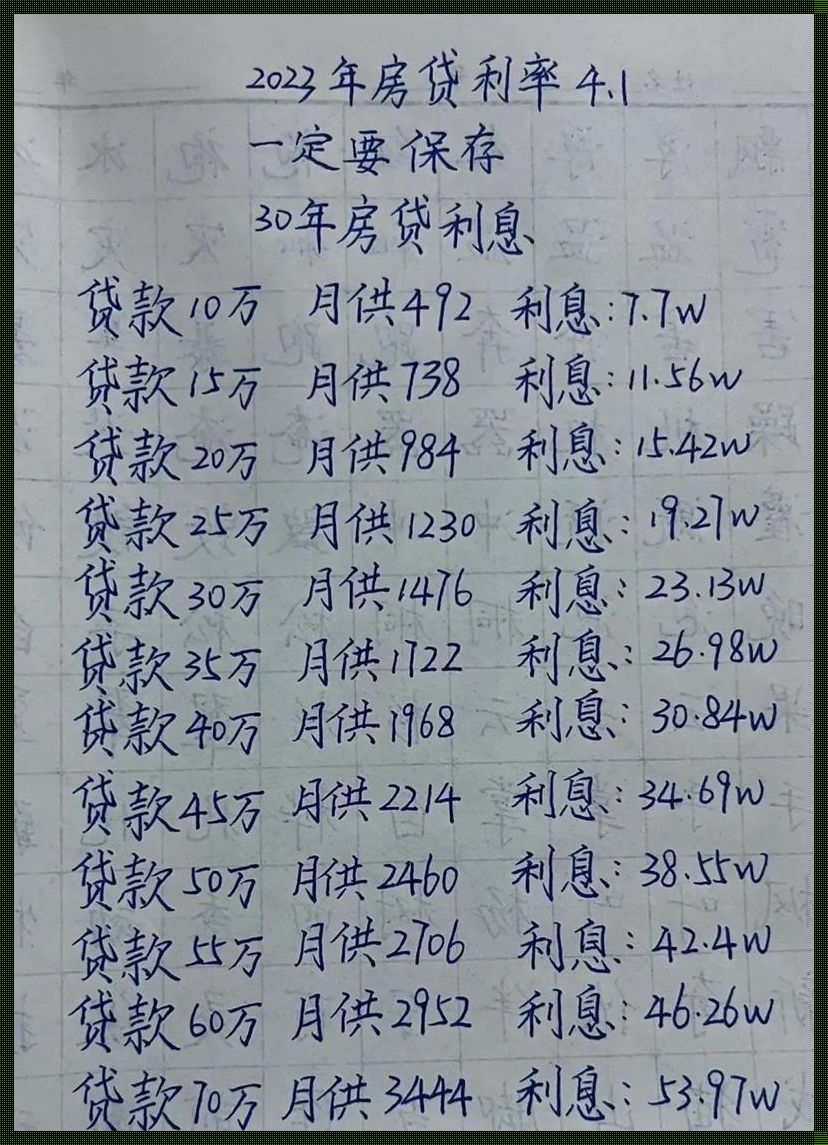 2023年房贷利率4.1
一定要保存
30年房贷利息
贷款10万 月供492 利息:7.7w
贷款15万 月供738 利息:11.56w
贷款20万 月供984 利息:15.42w
贷款25万 月供1230 利息:19.27w
贷款30万 月供1476 利息:23.13w
贷款35万 月供1722 利息:26.98w
贷款40万 月供1968 利息:30.84w
贷款45万 月供2214 利息:34.69w
贷款50万 月供2460 利息:38.55w
贷款55万 月供2706 利息:42.4w
贷款60万 月供2952 利息:46.26w
贷款70万 月供3444 利息:53.97w